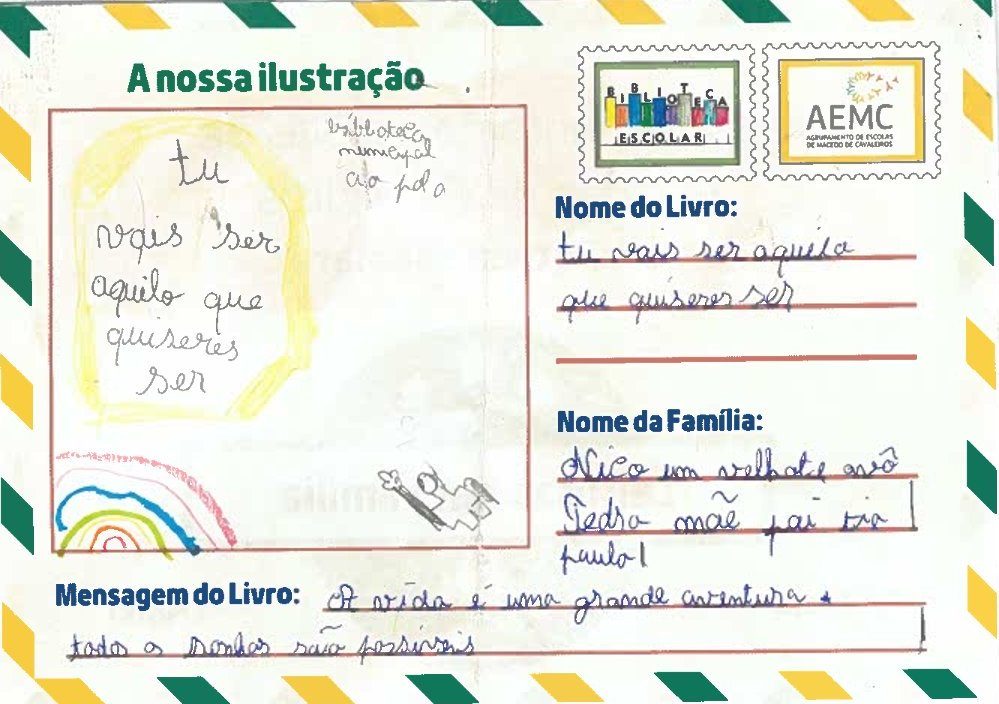 A nossa ilustração
tu
vais ser
aquilo que
quiseres
ser
biblioteca
municipal
BIBLIOTECA
ESCOLAR
AEMC
AGRUPAMENTO DE ESCOLAS
DE MACEDO DE CAVALEIROS
Nome do Livro:
tu vais ser aquilo
que quiseres ser
Nome da Família:
Nico um velhote avô
Pedro mãe pai tia
paula
Mensagem do Livro: A vida é uma grande aventura e
todos os sonhos são possiveis